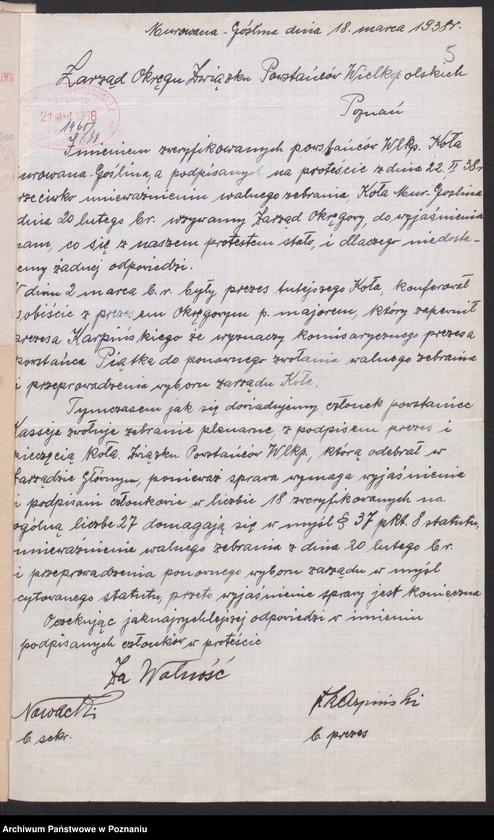 Murowana-Goślina dnia 18. marca 1938r.
5
Zarząd Okręgu Związku Powstańców Wielkopolskich
Poznań
21 MAR 1938
1961/
Imieniem zweryfikowanych powstańców Wlkp. Koła
urowana-Goślina, a podpisanych na proteście z dnia 22. II 38r
rzeciwko unieważnieniu walnego zebrania, Koła Mur. Goślina
dnia 20 lutego br. wzywamy Zarząd Okręgowy, do wyjaśnienia
nam, co się z naszem protestem stało, i dlaczego niedosta-
emy żadnej odpowiedzi.
W dniu 2 marca b.r. były prezes tutejszego Koła, konferował
obiście z prezesem Okręgowym p. majorem, który zapewnił
prezesa Karpińskiego że wyznaczy komisarycznego prezesa
powstańca Piątka do ponownego zwołania walnego zebrania
i przeprowadzenia wyboru zarządu Koła.
Tymczasem jak się dowiadujemy członek powstaniec
Kasseja zwołuje zebranie plenarne, z podpisem prezes i
pieczęcią Koła. Związku Powstańców Wlkp., którą odebrał w
Zarządzie Głównym, ponieważ sprawa wymaga wyjaśnienia
i podpisani członkowie w liczbie 18 zweryfikowanych na
ogólną liczbę 27 domagają się w myśl § 37 pkt. 8 statutu,
unieważnienie walnego zebrania z dnia 20 lutego br.
i przeprowadzenia ponownego wyboru zarządu w myśl
cytowanego statutu, przeto wyjaśnienie sprawy jest konieczna
Oczekując jaknajrychlejszej odpowiedzi w imieniu
podpisanych członków w proteście
Za Wolność
Nowacki
b sekr.
Karpiński
b prezes
Archiwum Państwowe w Poznaniu